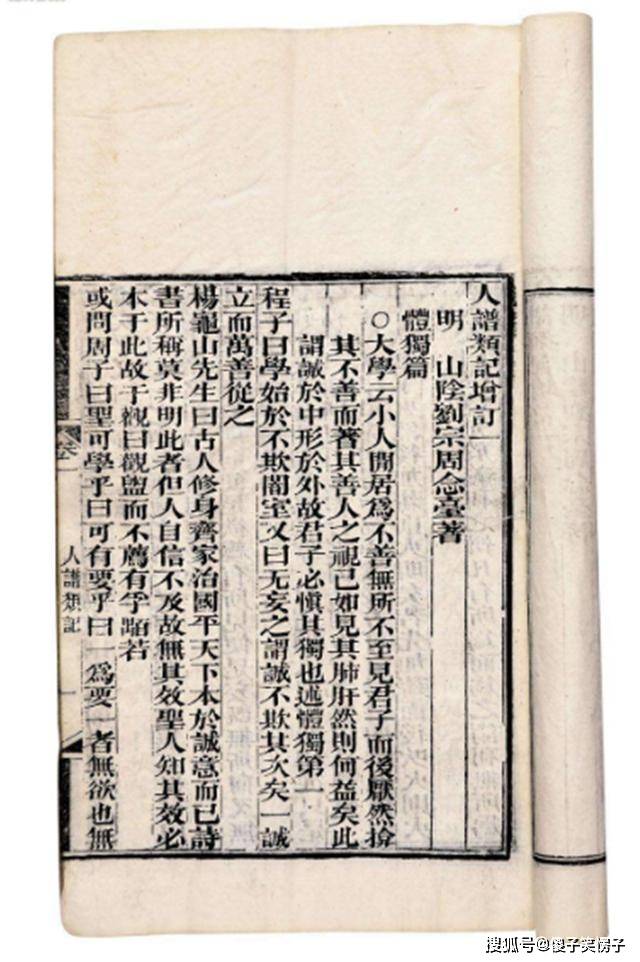 人譜類記增訂一
明　山陰劉宗周念臺著
體獨篇
○大學云小人閒居爲不善無所不至見君子而後厭然揜
其不善而著其善人之視己如見其肺肝然則何益矣此
謂誠於中形於外故君子必慎其獨也述體獨第一
程子曰學始於不欺闇室又曰无妄之謂誠不欺其次矣一誠
立而萬善從之
楊龜山先生曰古人修身齊家治國平天下本於誠意而已詩
書所稱莫非明此者但人自信不及故無其效聖人知其效必
本于此故于觀曰觀盥而不薦有孚顒若
或問周子曰聖可學乎曰可有要乎曰一爲要一者無欲也無
人譜類記
搜狐号@傻子笑愣子